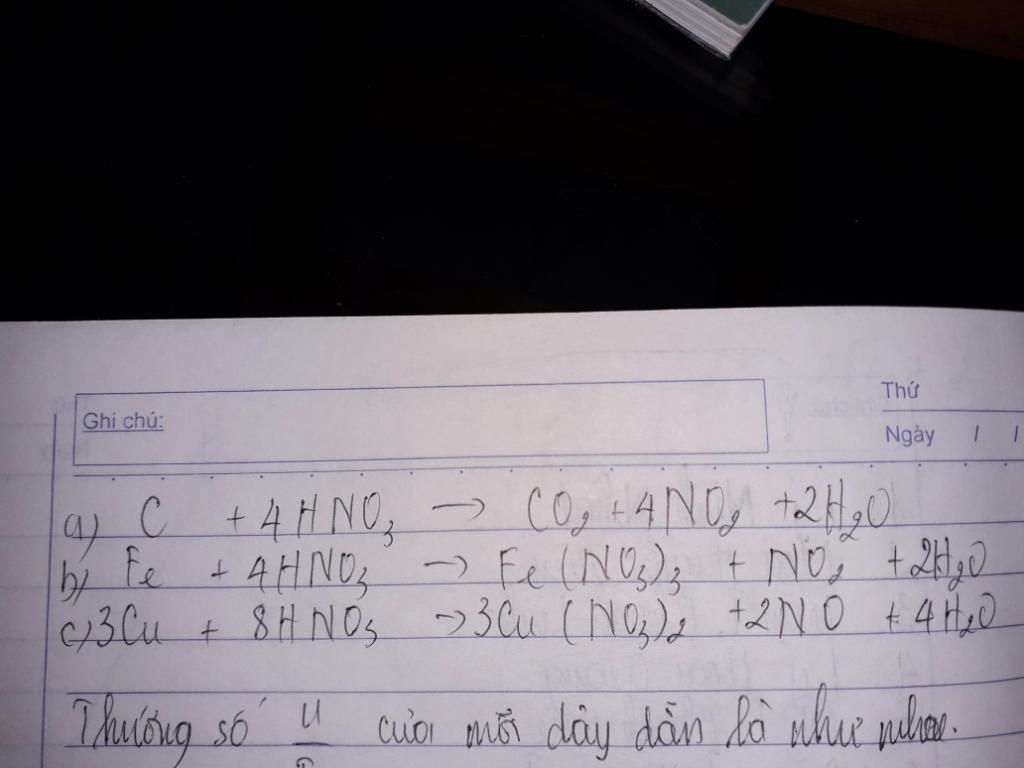 Ghi chú:
Thứ
Ngày / /
a) C + 4HNO₃ → CO₂ + 4NO₂ + 2H₂O
b) Fe + 4HNO₃ → Fe(NO₃)₃ + NO₂ + 2H₂O
c) 3Cu + 8HNO₃ → 3Cu(NO₃)₂ + 2NO + 4H₂O
Thương số U cuỉa mỗi dây dẫn là như nhau.